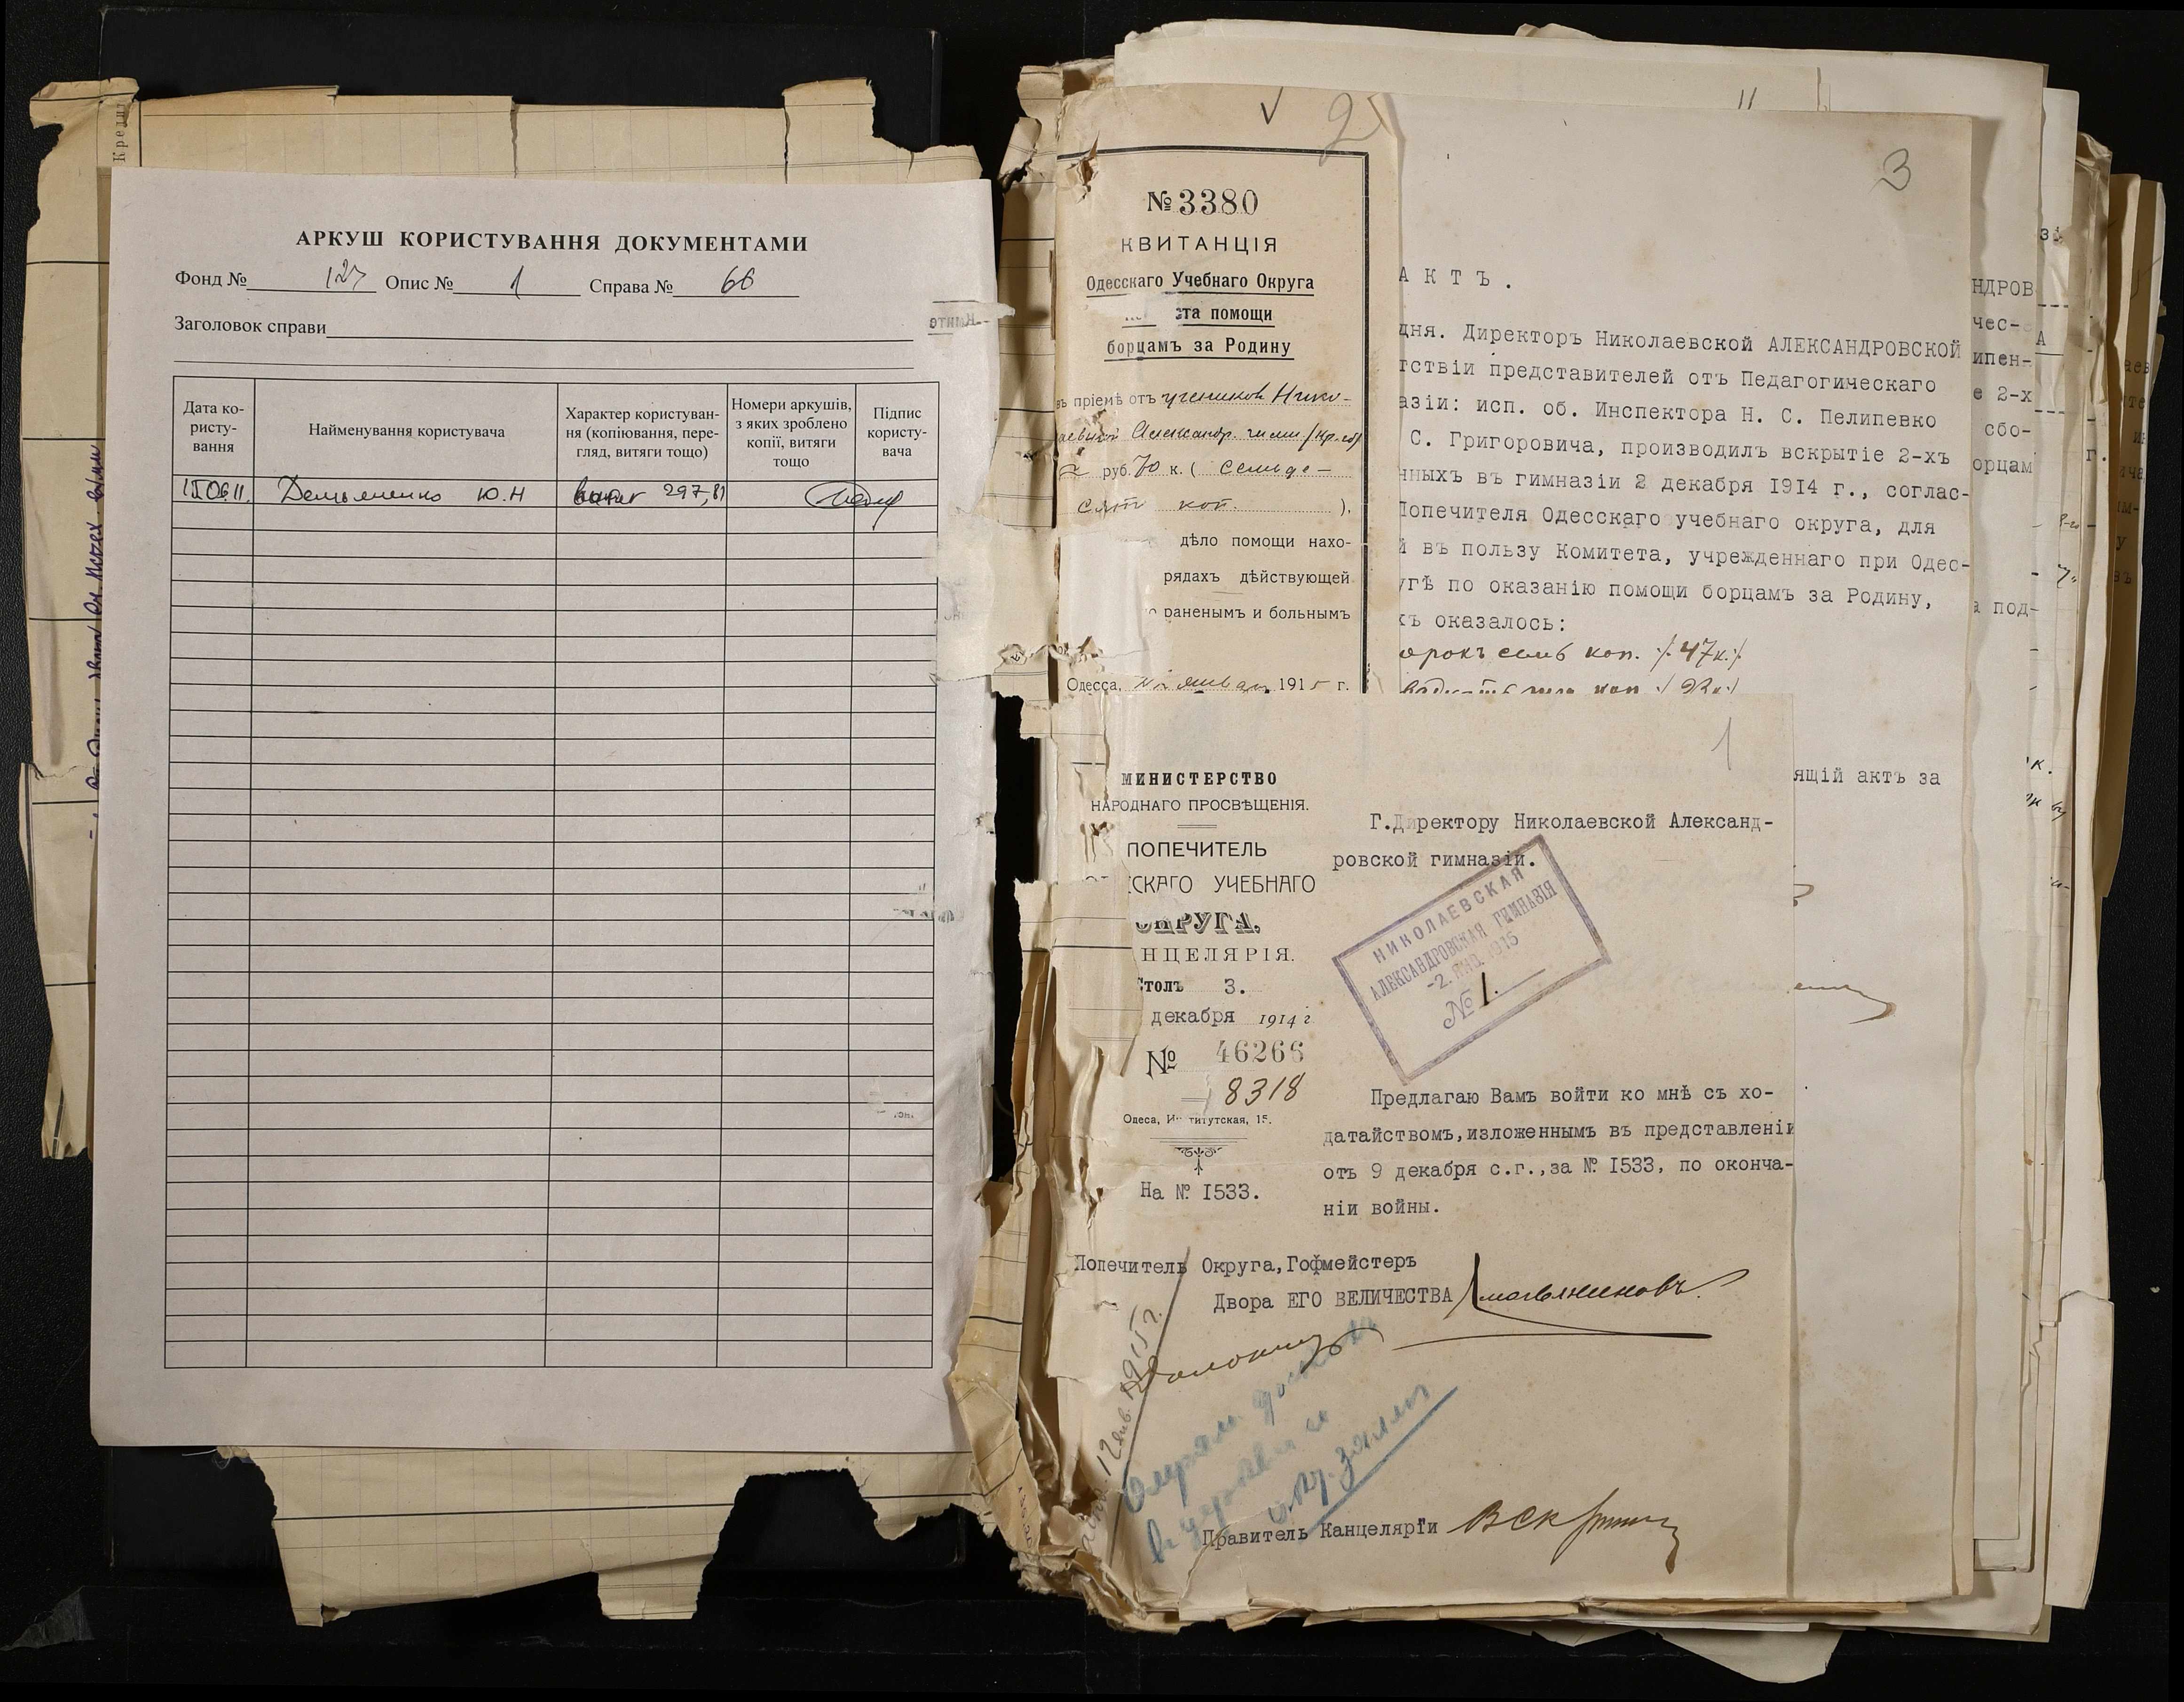 Кредит
АРКУШ КОРИСТУВАННЯ ДОКУМЕНТАМИ
Фонд № 127 Опис № 1 Справа № 66
Заголовок справи
Дата ко-
ристу-
вання
Найменування користувача
Характер користуван-
ня (копіювання, пере-
гляд, витяги тощо)
Номери аркушів,
з яких зроблено
копії, витяги
тощо
Підпис
користу-
вача
15.06.11. Демьяненко Ю.Н 297,81
2
№ 3380
КВИТАНЦІЯ
Одесскаго Учебнаго Округа
та помощи
борцамъ за Родину
въ пріемѣ отъ учениковъ Нико-
Александр. гимн
руб. 70 к. ( Семьде-
сятъ коп. ).
дѣло помощи нахо-
рядахъ дѣйствующей
раненымъ и больнымъ
Одесса, января 1915 г.
3
АКТЪ.
дня. Директоръ Николаевской АЛЕКСАНДРОВСКОЙ
тствіи представителей отъ Педагогическаго
азіи: исп. об. Инспектора Н. С. Пелипевко
С. Григоровича, производилъ вскрытіе 2-хъ
нныхъ въ гимназіи 2 декабря 1914 г., соглас-
Попечителя Одесскаго учебнаго округа, для
й въ пользу Комитета, учрежденнаго при Одес-
угѣ по оказанію помощи борцамъ за Родину,
хъ оказалось:
орокъ семь коп. /47к./
коп.
ящій актъ за
НДРОВ
чес-
ипен-
е 2-х
сбо-
орцам
а под-
1
МИНИСТЕРСТВО
НАРОДНАГО ПРОСВѢЩЕНІЯ.
ПОПЕЧИТЕЛЬ
ССКАГО УЧЕБНАГО
ОКРУГА.
НЦЕЛЯРІЯ.
Столъ 3.
декабря 1914 г
№ 46266
8318
Одеса, Институтская, 15.
На № I533.
Г.Директору Николаевской Александ-
ровской гимназіи.
НИКОЛАЕВСКАЯ
АЛЕКСАНДРОВСКАЯ ГИМНАЗІЯ
-2. ЯНВ. 1915
№ 1.
Предлагаю Вамъ войти ко мнѣ съ хо-
датайствомъ,изложеннымъ въ представленіи
отъ 9 декабря с.г.,за № I533, по оконча-
ніи войны.
Попечитель Округа,Гофмейстеръ
Двора ЕГО ВЕЛИЧЕСТВА
12 янв. 1915 г.
Правитель Канцеляріи